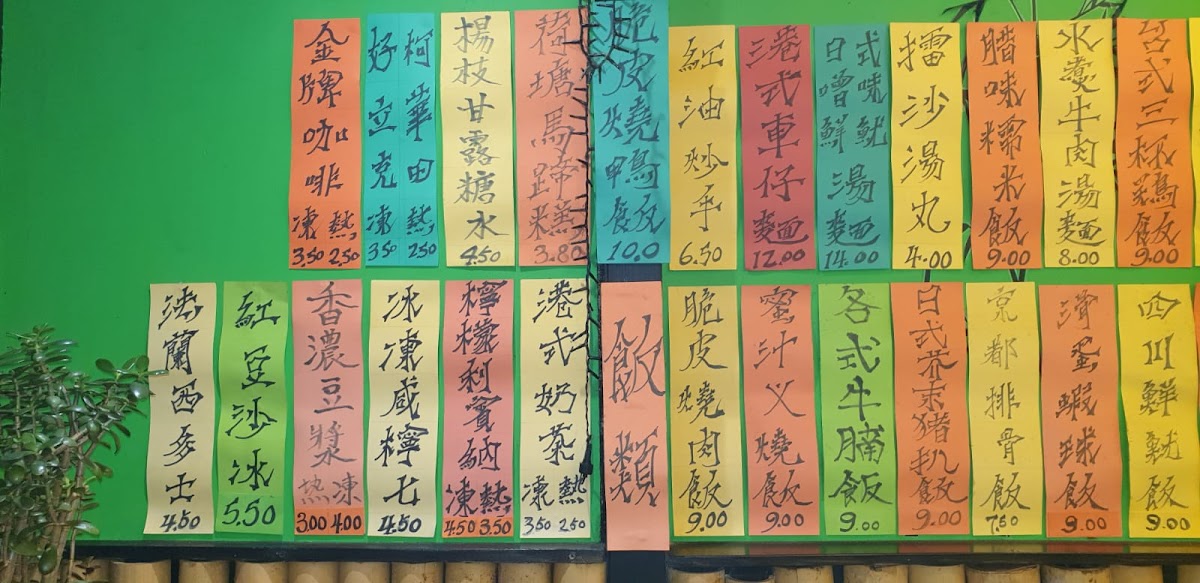 金牌咖啡
凍 熱
3.50 2.50
好立克
柯華田
凍 熱
3.50 2.50
楊枝甘露糖水
4.50
荷塘馬蹄糕
3.80
脆皮燒鴨飯
10.0
紅油炒手
6.50
港式車仔麵
12.00
日式噌味鮮魷湯麵
14.00
擂沙湯丸
4.00
腊味糯米飯
9.00
水煮牛肉湯麵
8.00
台式三杯鷄飯
9.00
法蘭西多士
4.50
紅豆沙冰
5.50
香濃豆漿
热 凍
3.00 4.00
冰凍咸檸七
4.50
檸檬利賓納
凍 熱
4.50 3.50
港式奶茶
凍 熱
3.50 2.50
飯類
脆皮燒肉飯
9.00
蜜汁义燒飯
9.00
各式牛腩飯
9.00
日式芥末豬扒飯
9.00
京都排骨飯
7.50
滑蛋蝦球飯
9.00
四川鮮魷飯
9.00